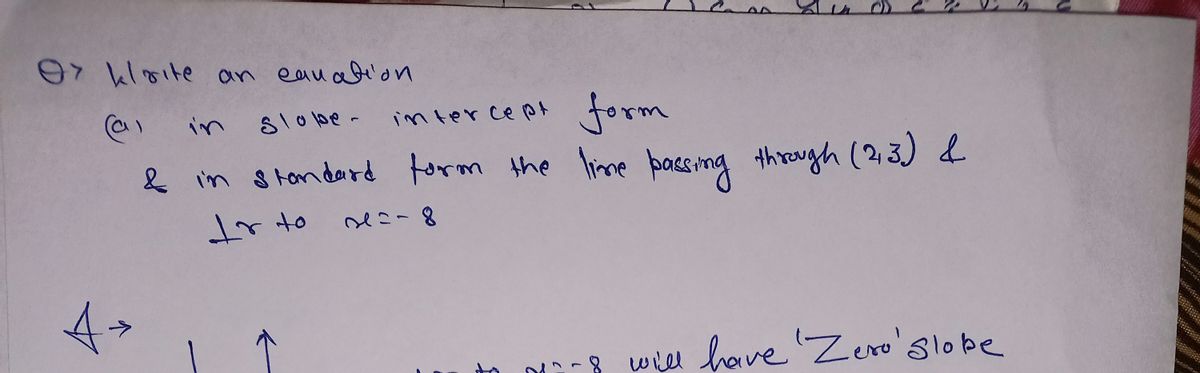 Q> Write an equation
(a) in slope-intercept form
& in standard form the line passing through (2,3) &
⊥r to x=-8
A→
to x=-8 will have 'Zero' slope